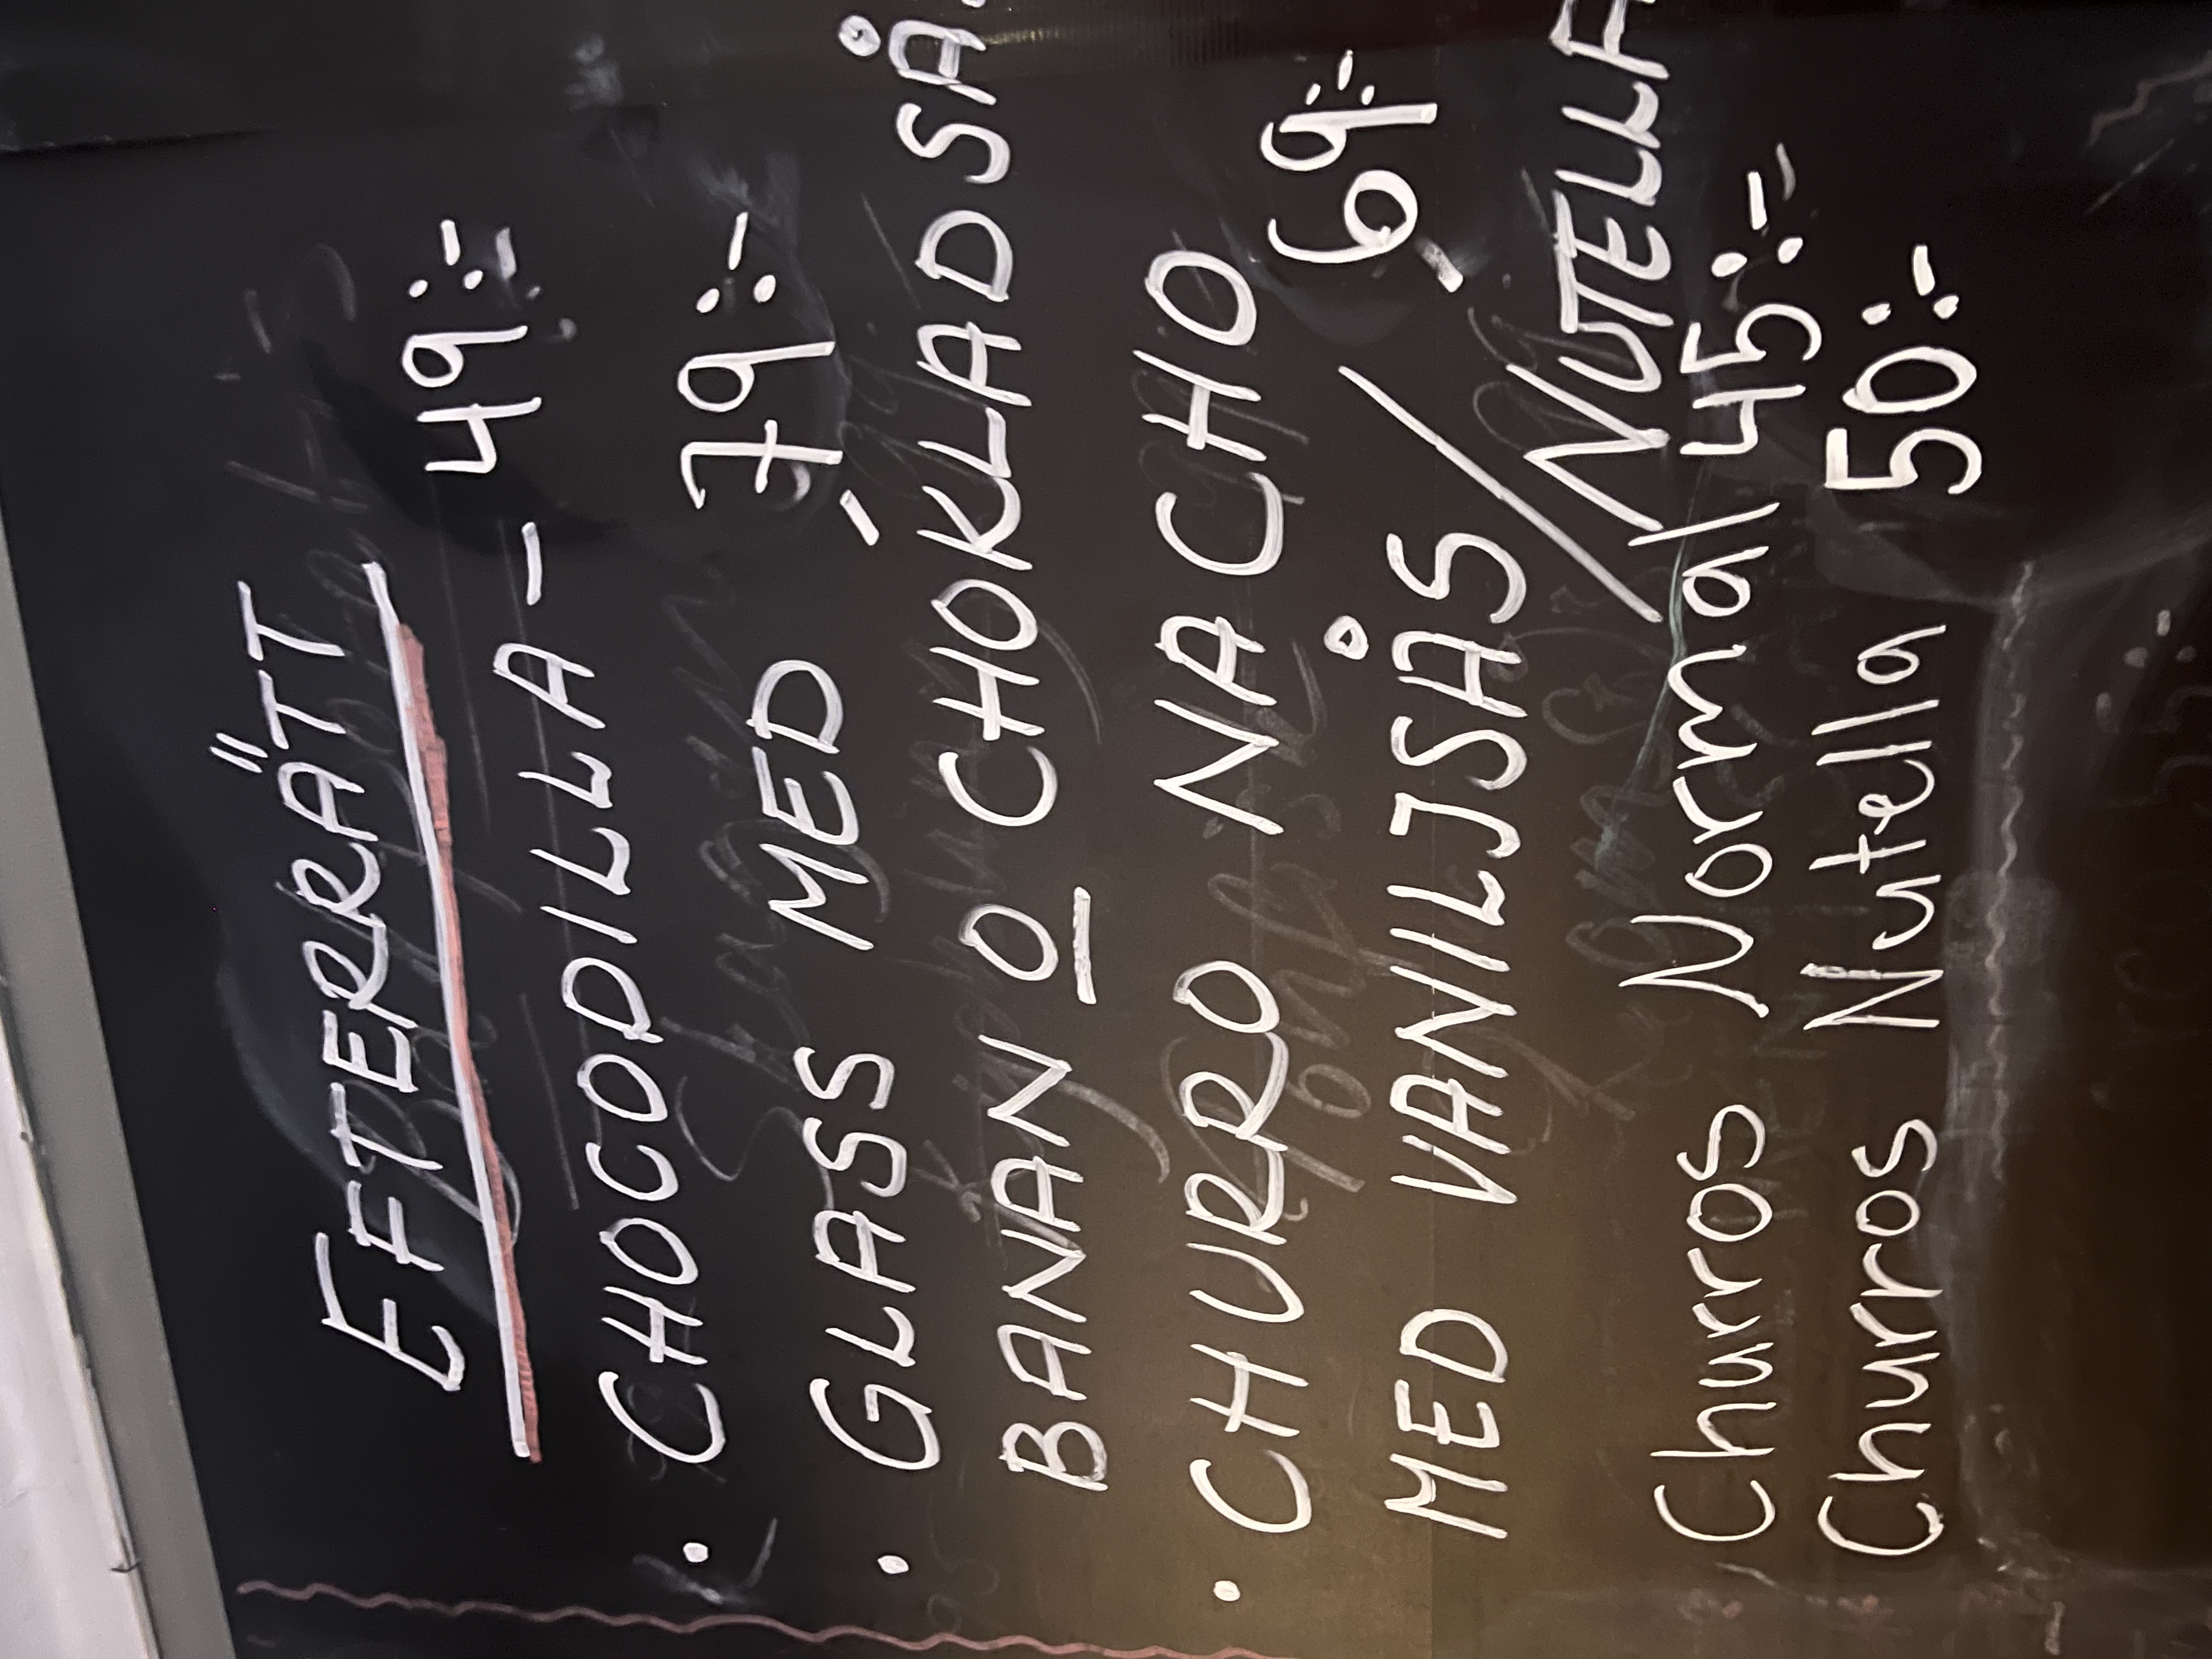 EFTERRÄTT
• CHOCODILLA - 49:-
• GLASS MED 79:-
BANAN O CHOKLADSÅ
• CHURRO NACHO 69:-
MED VANILJSÅS / NUTELLA
Churros Normal 45:-
Churros Nutella 50:-